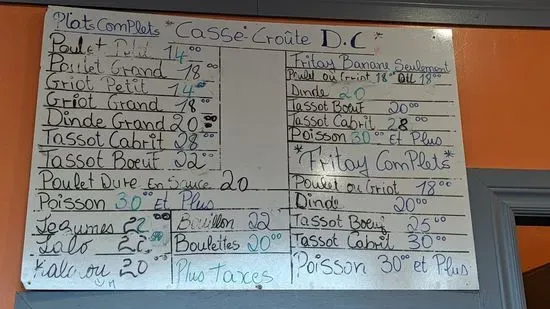 Plats Complets
*Casse-Croûte D.C*
Poulet Petit 14.00
Poulet Grand 18.00
Griot Petit 14.00
Griot Grand 18.00
Dinde Grand 20.00
Tassot Cabrit 28.00
Tassot Boeuf 22.00
Poulet Dure En Sauce 20
Poisson 30.00 Et Plus
Legumes 22.00
Lalo
Kalalou 20.00
Bouillon 22.00
Boulettes 20.00
Plus Taxes
Fritay Banane Seulement
Poulet ou Griot 18.00 OU 18.00
Dinde 20
Tassot Boeuf 20.00
Tassot Cabrit 28
Poisson 30.00 et Plus
*Fritay Complets*
Poulet ou Griot 18.00
Dinde 20.00
Tassot Boeuf 25.00
Tassot Cabrit 30.00
Poisson 30.00 et Plus